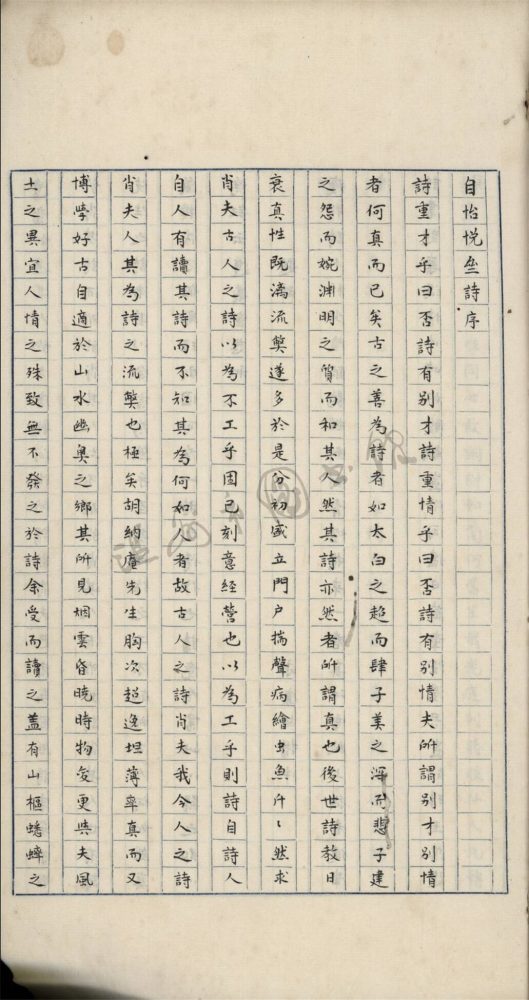 自怡悅叁詩序
詩重才乎曰否詩有別才詩重情乎曰否詩有別情夫所謂別才別情
者何真而已矣古之善為詩者如太白之超而肆子美之渾而悲子建
之怨而婉淵明之質而和其人然其詩亦然者所謂真也後世詩教日
衰真性既漓流獘遂多於是分初盛立門户揣聲病繪虫魚斤〻然求
肖夫古人之詩以為不工乎固已刻意經營也以為工乎則詩自詩人
自人有讀其詩而不知其為何如人者故古人之詩肖夫我今人之詩
肖夫人其為詩之流獘也極矣胡納庵先生胸次超逸坦薄率真而又
博學好古自適於山水幽奥之鄉其所見烟雲昏曉時物變更與夫風
土之異宜人情之殊致無不發之於詩余受而讀之蓋有山樞蟋蟀之
溫州市圖書館